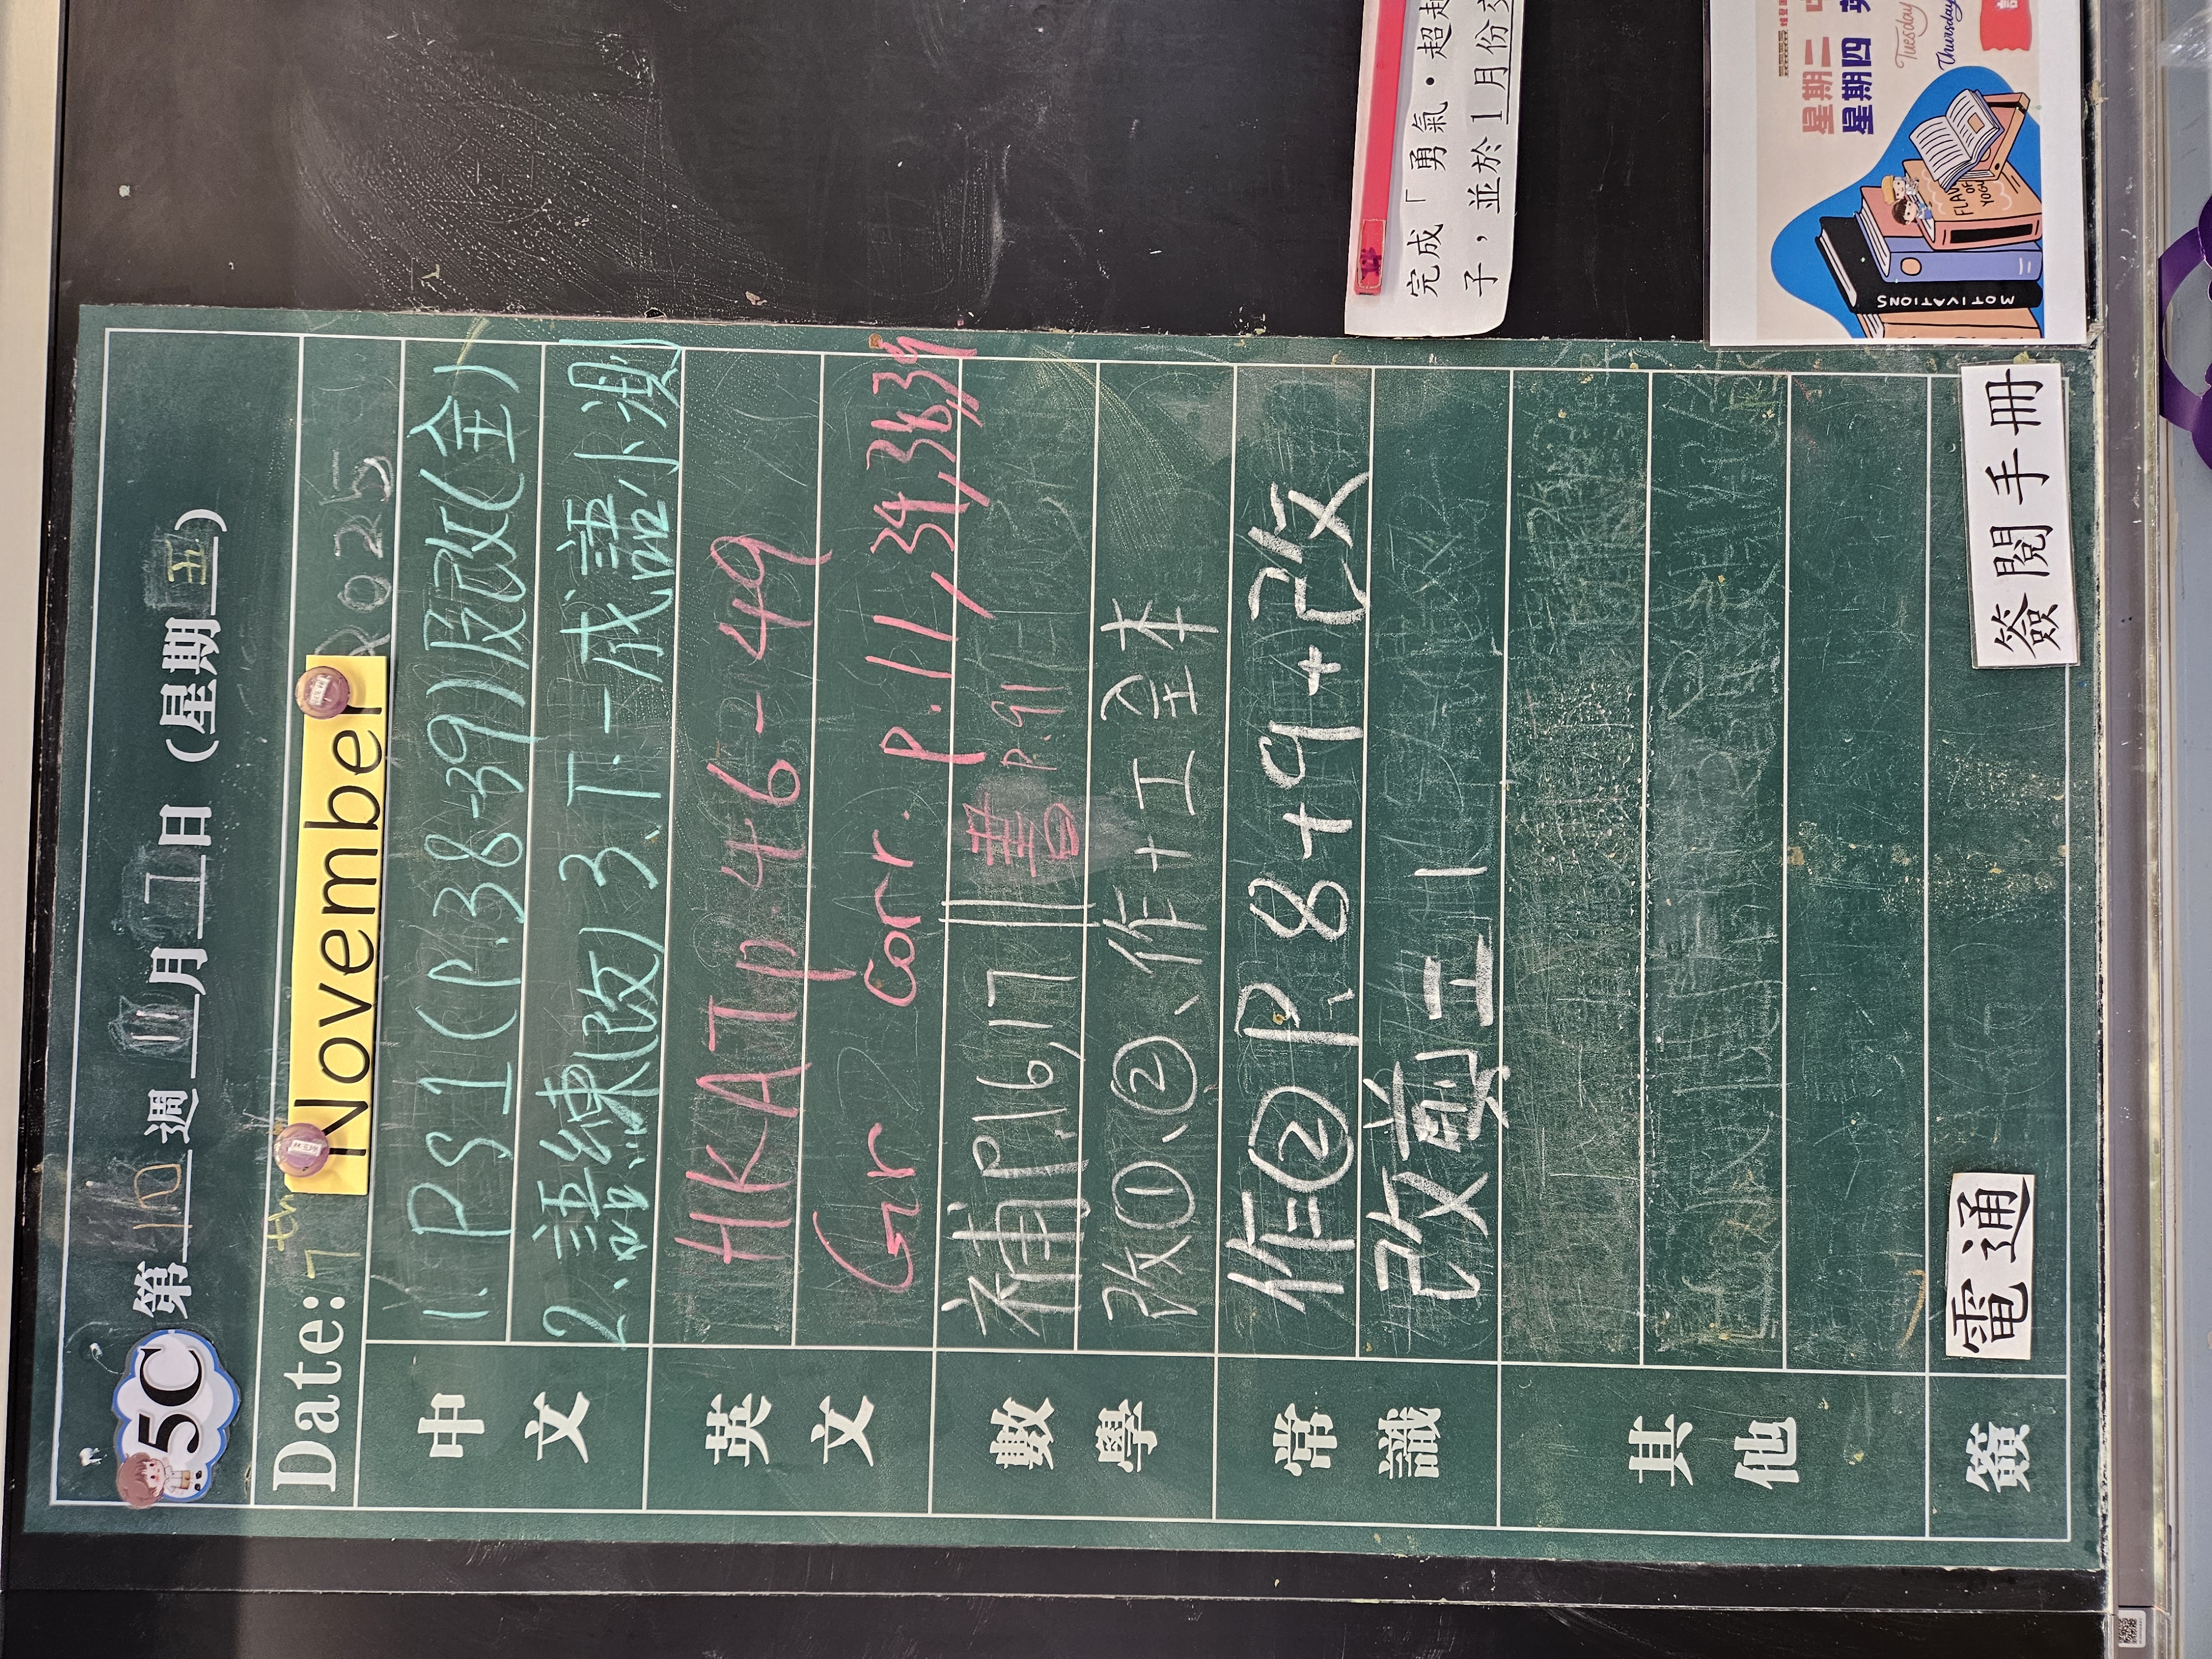 5C 第10週 11月7日 (星期五)
Date: 7th November 2025
中文
1. PS1(P.38-39)反改(全)
2、語練(改) 3、T.-成語小測
英文
HKAT p.46-49
Gr Corr. P.11, 34,38,39
數學
補P.16,17 書 P.91
改①、②、作+工全本
常識
作②P.8+9+改
改前工1
其他
簽
電通
簽閱手冊
完成「勇氣・超越
子，並於1月份交
星期二
Tuesday
星期四
Thursday
MOTIVATIONS